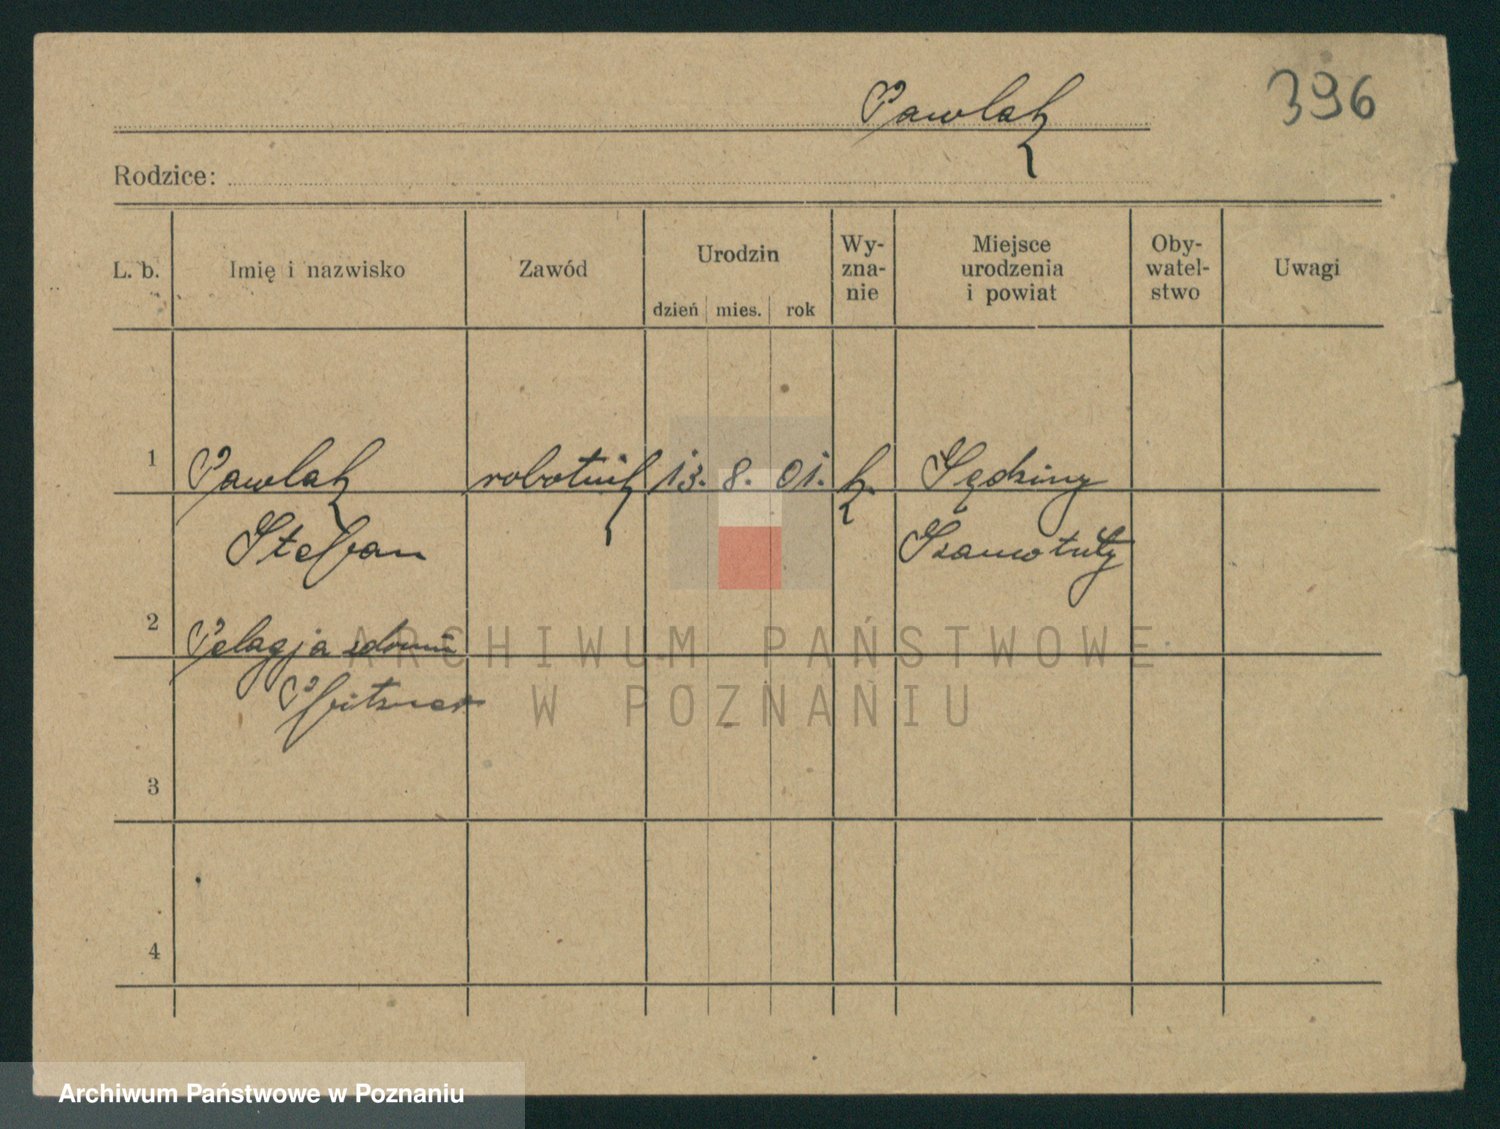 396
Pawlak
Rodzice:
L. b. Imię i nazwisko Zawód Urodzin dzień mies. rok Wy-zna-nie Miejsce urodzenia i powiat Oby-watel-stwo Uwagi
1 Pawlak robotnik 13. 8. 01. k. Sędziny
Stefan Szamotuły
2 Pelagja
3
4
ARCHIWUM PAŃSTWOWE
W POZNANIU
Archiwum Państwowe w Poznaniu